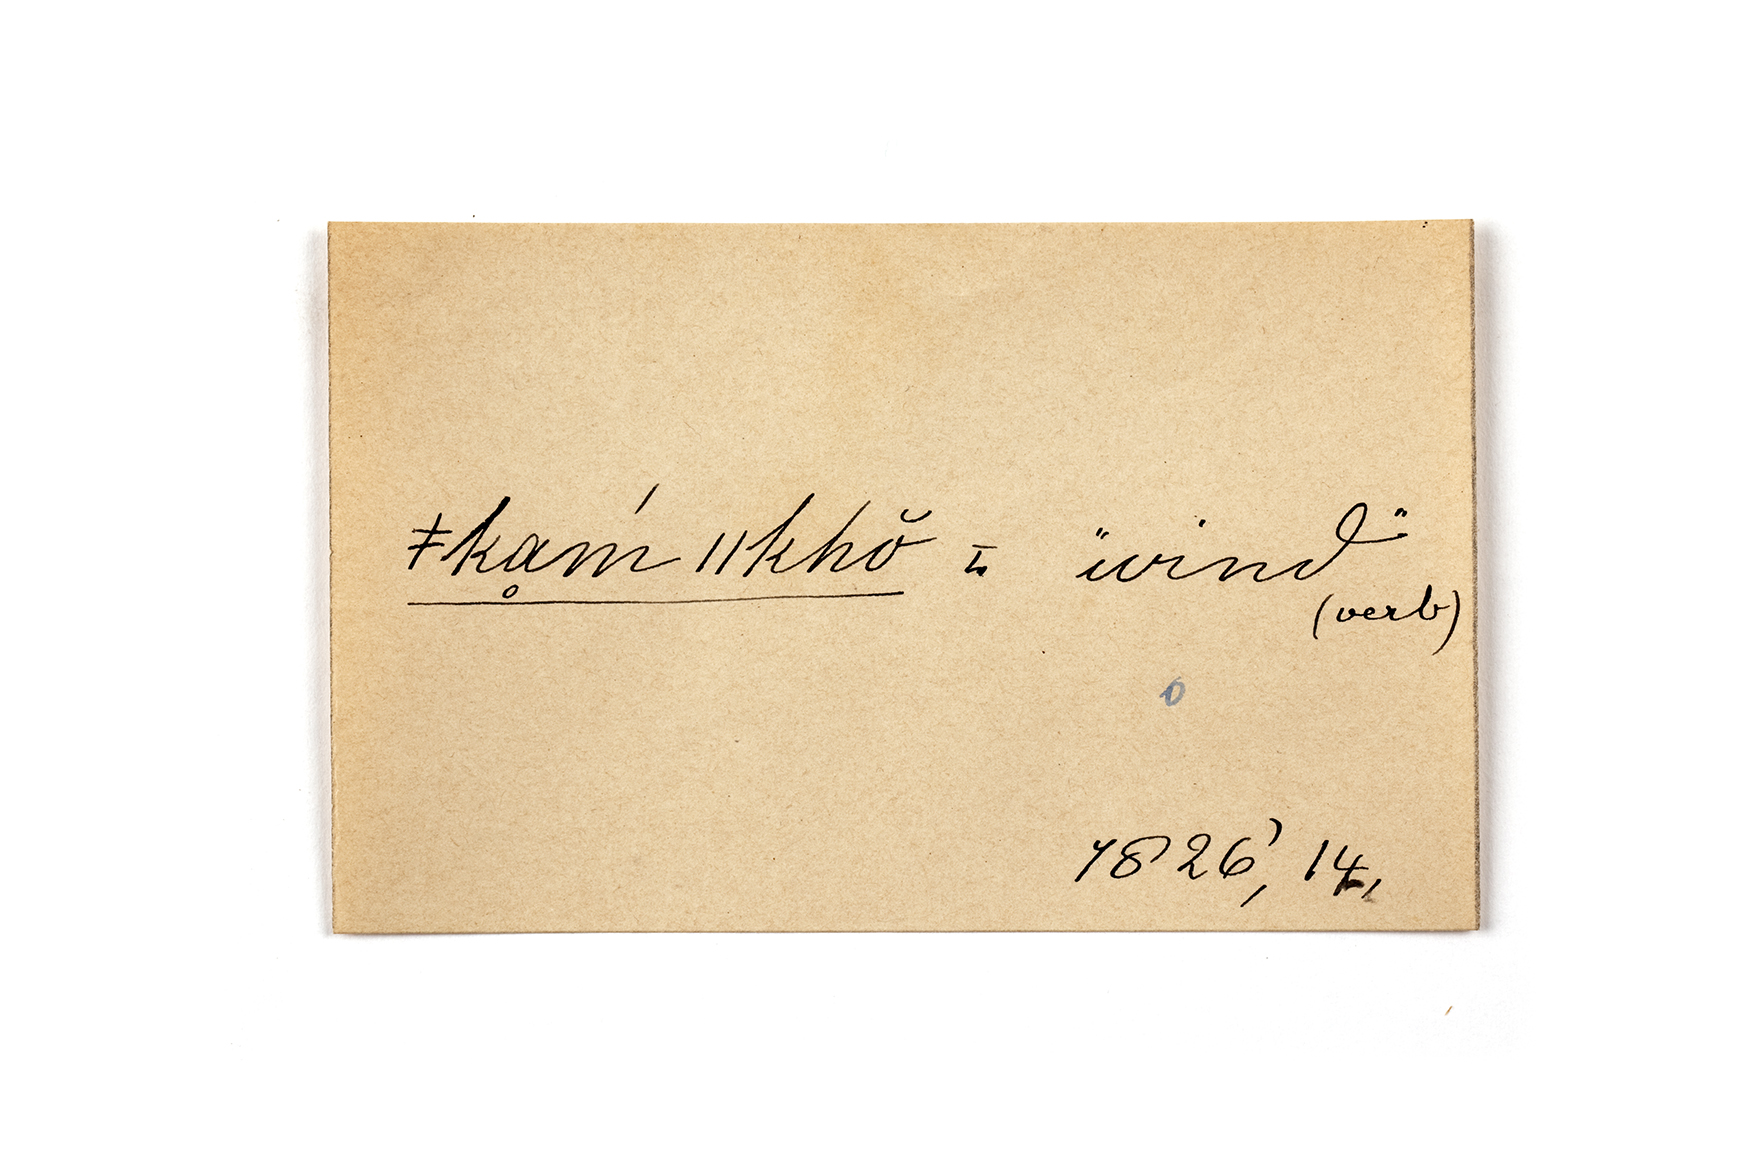 ǂkạḿ ǁkhŏ = "wind"
(verb)
0
1826', 14.